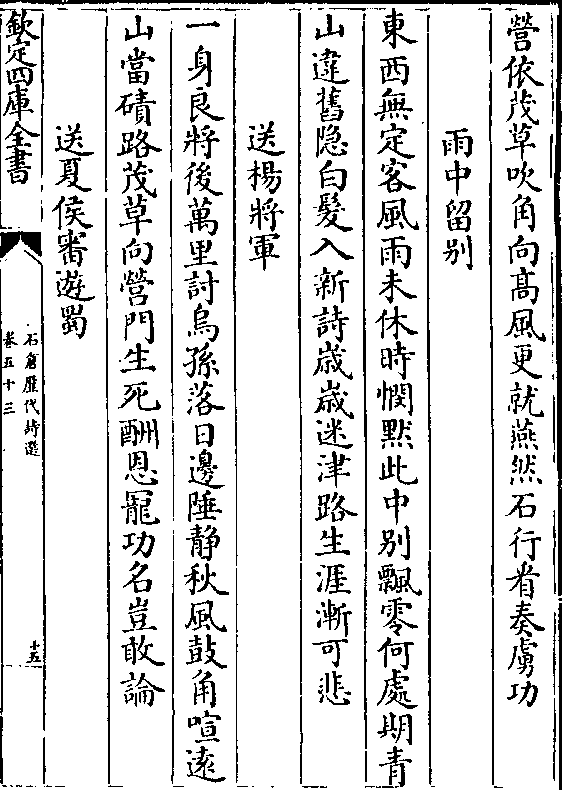 營依茂草吹角向髙風更就燕然石行看奏虜功
雨中留别
東西無定客風雨未休時憫黙此中别飄零何處期青
山違舊隐白髮入新詩歳歳迷津路生涯漸可悲
送楊將軍
一身良將後萬里討烏孫落日邊陲静秋風鼓角喧逺
山當磧路茂草向營門生死酬恩寵功名豈敢論
送夏侯審遊蜀
欽定四庫全書
石倉歴代詩選
卷五十三
十五